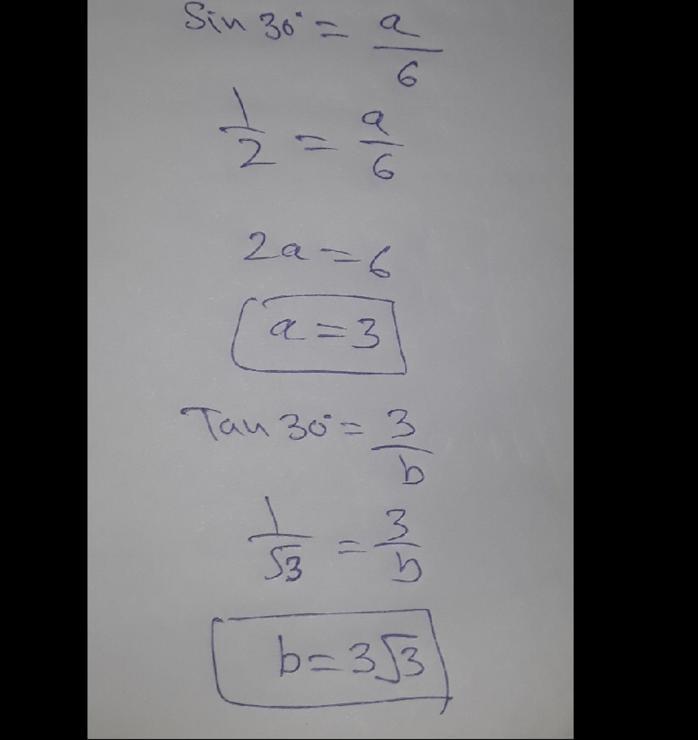 Sin 30° = a/6
1/2 = a/6
2a = 6
a = 3
Tan 30° = 3/b
1/√3 = 3/b
b = 3√3